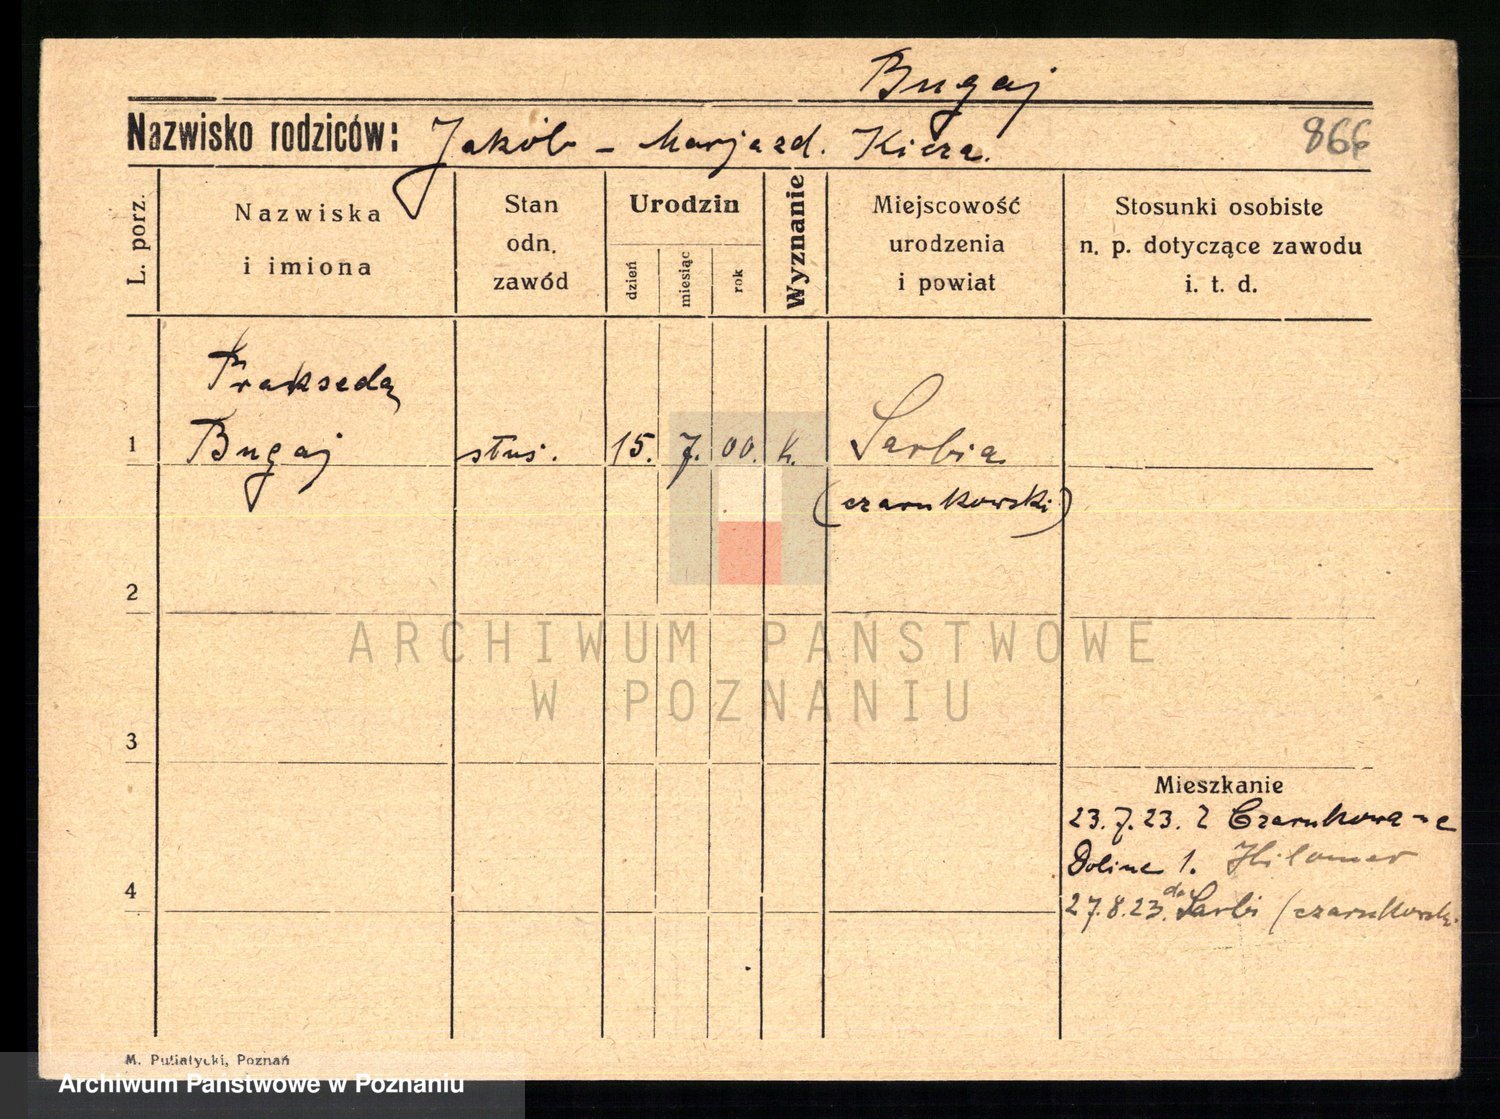 Bugaj
Nazwisko rodziców: Jakób - Marja zd. Kiera.
866
L. porz.
Nazwiska
i imiona
Stan
odn.
zawód
Urodzin
dzień
miesiąc
rok
Wyznanie
Miejscowość
urodzenia
i powiat
Stosunki osobiste
n. p. dotyczące zawodu
i. t. d.
Prakseda
1 Bugaj służ. 15. 7. 00. k. Sarbia
(czarnkowski)
2
ARCHIWUM PAŃSTWOWE
W POZNANIU
3
Mieszkanie
23.7.23. Z Czarnkowa
4 Dolina 1.
27.8.23. do Sarbi (czarnkowski
M. Putiatycki, Poznań
Archiwum Państwowe w Poznaniu